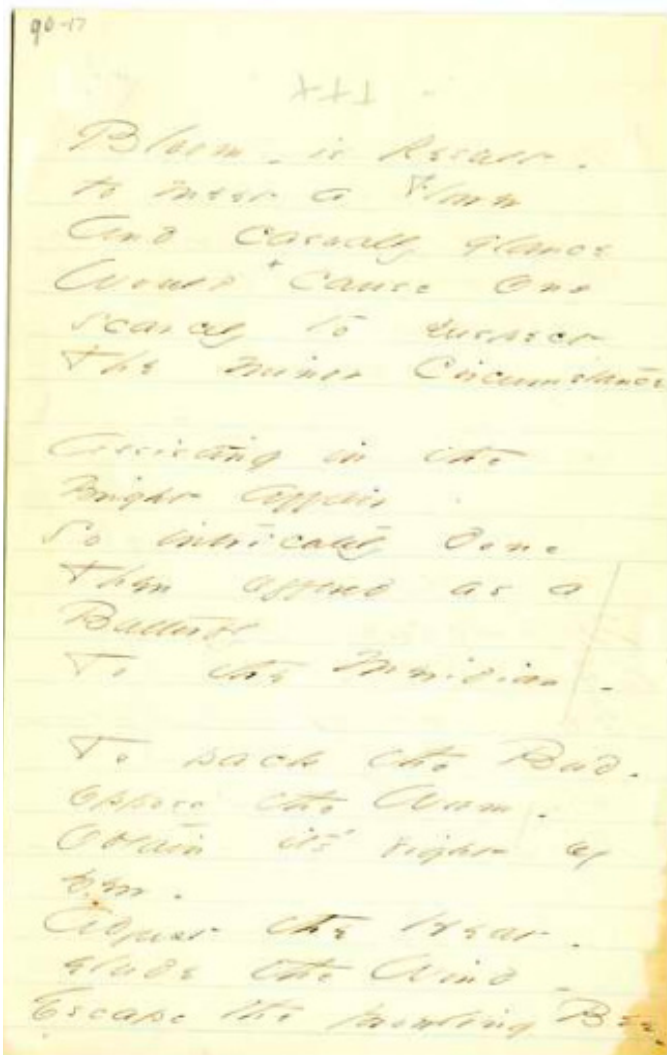 90-17
Bloom - is Result -
to meet a Flower
And casually glance
Would + cause one
scarcely to suspect
The minor Circumstance
Assisting in the
Bright Affair
So intricately done
Then offered as a
Butterfly
To the Meridian -
To pack the Bud -
oppose the Worm -
Obtain it's right of
Dew -
Adjust the Heat -
elude the Wind -
Escape the prowling Bee -